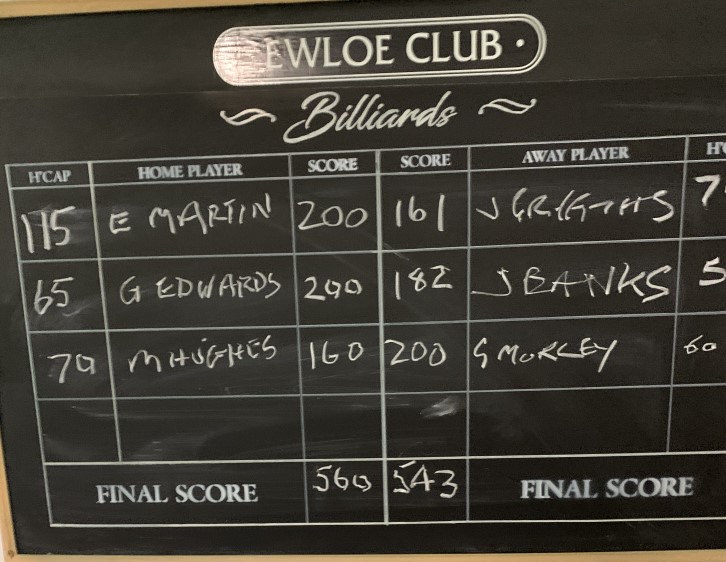 EWLOE CLUB ·
Billiards
H'CAP HOME PLAYER SCORE SCORE AWAY PLAYER
115 E MARTIN 200 161 J GRIGTHS 7
65 G EDWARDS 200 182 J BANKS 5
70 M HUGHES 160 200 S MORLEY 60
FINAL SCORE 560 543 FINAL SCORE